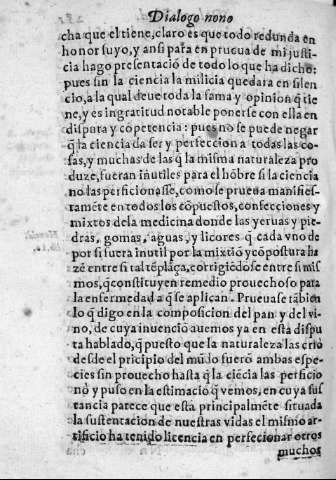 Dialogo nono
cha que el tiene, claro es que todo redunda en
honor suyo, y ansi para en prueua de mi justi
cia hago presentació de todo lo que ha dicho:
pues sin la ciencia la milicia quedara en silen
cio, a la qual deue toda la fama y opinion q̃ tie
ne, y es ingratitud notable ponerse con ella en
disputa y cõpetencia: pues no se puede negar
q̃ la ciencia da ser y perfeccion a todas las co-
sas, y muchas de las q̃ la misma naturaleza pro
duze, fueran inutiles para el hõbre si la ciencia
no las perficionasse, como se prueua manifies-
tamẽte en todos los cõpuestos, confecciones y
mixtos de la medicina donde las yeruas y pie-
dras, gomas, aguas, y licores q̃ cada vno de
por si fuera inutil por la mixtiõ y cõpostura ha
zẽ entre si tal tẽplãça, corrigiẽdose entre si mis
mos, q̃ constituyen remedio prouechoso para
la enfermedad a q̃ se aplican. Prueuase tãbien
lo q̃ digo en la composicion del pan y del vi-
no, de cuya inuenciõ auemos ya en esta dispu
ta hablado, q̃ puesto que la naturaleza las crió
desde el pricipio del mũdo fuerõ ambas espe-
cies sin prouecho hasta q̃ la ciẽcia las perficio
nó y puso en la estimació q̃ vemos, en cuya sus
tancia parece que está principalmẽte situada
la sustentacion de nuestras vidas el mismo ar-
tificio ha tenido licencia en perfecionar otros
muchos